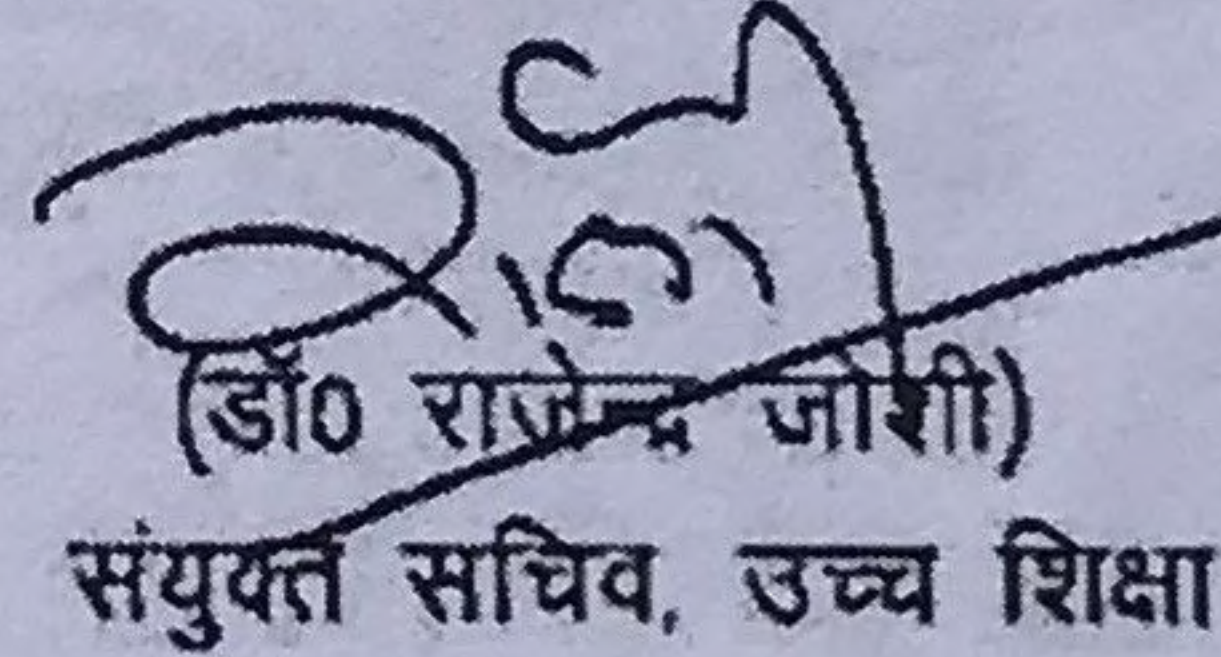 (डॉ0 राजेन्द्र जोशी)
संयुक्त सचिव, उच्च शिक्षा